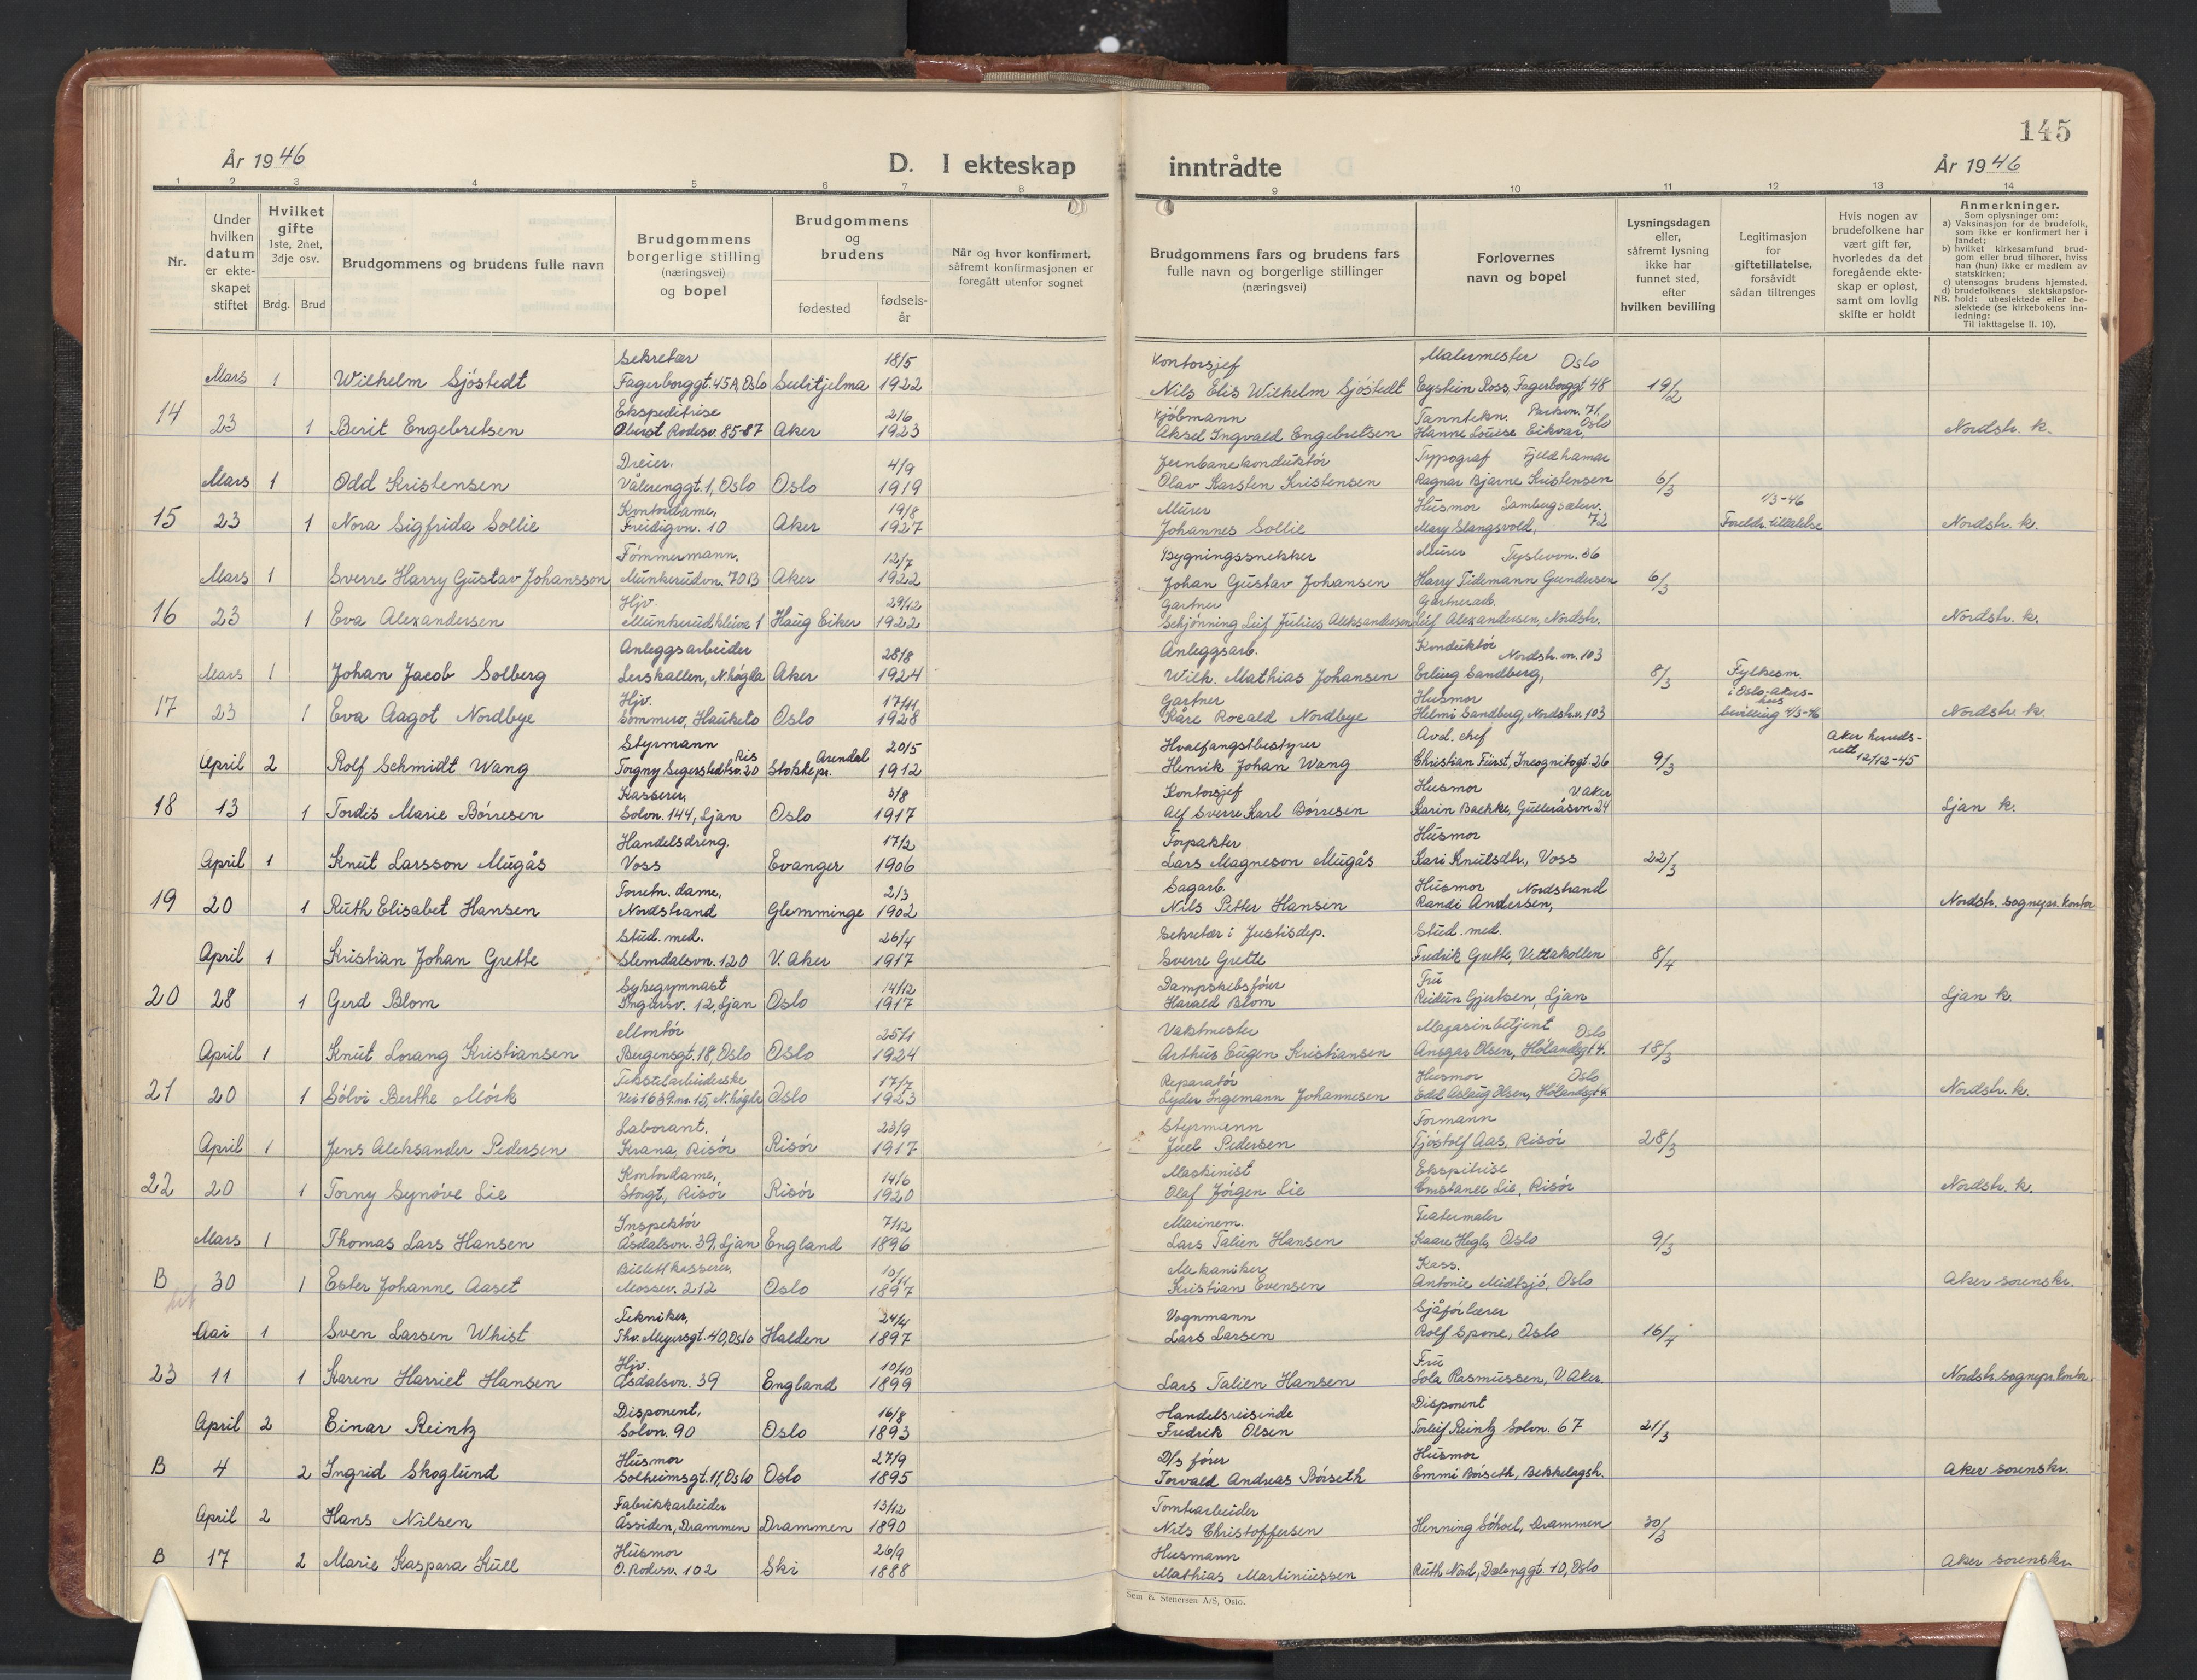 145
År 1946
D. I ekteskap inntrådte
År 1946
1 2 3 4 5 6 7 8 9 10 11 12 13 14
Nr.
Under hvilken datum er ekteskapet stiftet
Hvilket gifte 1ste, 2net, 3dje osv.
Brdg. Brud
Brudgommens og brudens fulle navn
Brudgommens borgerlige stilling (næringsvei) og bopel
Brudgommens og brudens
fødested fødsels-år
Når og hvor konfirmert, såfremt konfirmasjonen er foregått utenfor sognet
Brudgommens fars og brudens fars fulle navn og borgerlige stillinger (næringsvei)
Forlovernes navn og bopel
Lysningsdagen eller, såfremt lysning ikke har funnet sted, efter hvilken bevilling
Legitimasjon for giftetillatelse, forsåvidt sådan tiltrenges
Hvis nogen av brudefolkene har vært gift før, hvorledes da det foregående ekteskap er opløst, samt om lovlig skifte er holdt
Anmerkninger.
Som oplysninger om:
a) Vaksinasjon for de brudefolk, som ikke er konfirmert her i landet;
b) hvilket kirkesamfund brudgom eller brud tilhører, hviss han (hun) ikke er medlem av statskirken;
c) utensogns brudens hjemsted.
d) brudefolkenes slektskapsforhold: ubeslektede eller beslektede (se kirkebokens innledning:
NB.
Til iakttagelse II. 10).
Sekretær 18/5 Kontorsjef Malermester Oslo
Mars 1 Wilhelm Sjöstedt Fagerborggt. 45A, Oslo Sulitjelma 1922 Nils Elis Wilhelm Sjöstedt Eystein Ross, Fagerborggt 48 19/2
14 Ekspeditrise 2/6 Kjöbmann Tanntekn. Parkvn. 71, Oslo
23 1 Berit Engebretsen Oberst Rodesv. 85-87 Aker 1923 Aksel Ingvald Engebretsen Hanne Louise Eikvar, Nordstr. k.
Dreier. 4/9 Jernbanekonduktör Typograf Fjeldhamar
Mars 1 Odd Kristensen Vålerenggt. 1, Oslo Oslo 1919 Olav Karsten Kristensen Ragnar Bjarne Kristensen 6/3
15 Kontordame, 19/8 Murer Husmor Lambergsæterv. 72 1/3-46
23 1 Nora Sigfrida Sollie Freidigvn. 10 Aker 1927 Johannes Sollie Mary Slangsvold, Foreldr. tillatelse Nordstr. k.
Tömmermann. 12/7 Bygningssnekker Murer Tyslevvn. 36
Mars 1 Sverre Harry Gustav Johansson Munkerudvn. 70B Aker 1922 Johan Gustav Johansen Harry Tidemann Gundersen 6/3
16 Hjv. 29/12 Gartner Gartnerarb.
23 1 Eva Alexandersen Munkerudkleiva 1 Haug Eiker 1922 Schjönning Leif Julius Aleksandersen Leif Alexandersen, Nordstr. Nordstr. k.
Anleggsarbeider 28/8 Anleggsarb. Konduktör Nordstr. vn. 103
Mars 1 Johan Jacob Solberg Lerskallen, N.högda Aker 1924 Wilh. Mathias Johansen Erling Sandberg, 8/3 Fylkesm.
17 Hjv. 17/11 Gartner Husmor i Oslo-Akers-hus
23 1 Eva Aagot Nordbye Sommero, Hauketo Oslo 1928 Kåre Roeald Nordbye Helmi Sandberg, Nordstrv. 103 bevilling 4/3-46 Nordstr. k.
Styrmann Ris Arendal 20/5 Hvalfangstbestyrer Avd. chef Aker herreds-
April 2 Rolf Schmidt Wang Torgny Segerstedtsv. 20 Stokke pr. 1912 Henrik Johan Wang Christian Fürst, Incognitogt. 26 9/3 rett 12/12-45
18 Kasserer, 3/8 Kontorsjef Husmor V. Aker
13 1 Tordis Marie Börresen Solvn. 144, Ljan Oslo 1917 Alf Sverre Karl Börresen Karin Bække, Gulleråsvn 24 Ljan k.
Handelsdreng. 17/2 Forpakter Husmor
April 1 Knut Larsson Mugås Voss Evanger 1906 Lars Magneson Mugås Kari Knutsdtr., Voss 22/3
19 Forretn. dame, 2/3 Sagarb. Husmor Nordstrand
20 1 Ruth Elisabet Hansen Nordstrand Glemminge 1902 Nils Petter Hansen Randi Andersen, Nordstr. sognepr. kontor
Stud. med. 26/4 Sekretær i Justisdep. Stud. med.
April 1 Kristian Johan Grette Slemdalsvn. 120 V. Aker 1917 Sverre Grette Fredrik Grette, Vettakollen 8/4
20 Sykegymnast 14/12 Dampskibsförer Fru
28 1 Gerd Blom Ingiersv. 12, Ljan Oslo 1917 Harald Blom Reidun Gjertsen, Ljan Ljan k.
Montör 25/1 Vaktmester Magasinbetjent Oslo
April 1 Knut Lorang Kristiansen Bergensgt. 18, Oslo Oslo 1924 Arthur Eugen Kristiansen Ansgar Olsen, Hölandsgt 4. 18/3
21 Tekstilarbeiderske 17/7 Reparatör Husmor Oslo
20 1 Sölvi Berthe Mörk Vei 1639. nr. 15, N. högda Oslo 1923 Lyder Ingemann Johannesen Edd Aslaug Olsen, Hölandsgt 4. Nordstr. k.
Laborant. 23/9 Styrmann Formann
April 1 Jens Aleksander Pedersen Krana, Risör Risör 1917 Juel Pedersen Tjöstolf Aas, Risör 28/3
22 Kontordame, 14/6 Maskinist Ekspitrise
20 1 Torny Synöve Lie Storgt., Risör Risör 1920 Olaf Jörgen Lie Constance Lie, Risör Nordstr. k.
Inspektör 7/12 Marinem. Teatermaler
Mars 1 Thomas Lars Hansen Åsdalsvn. 39, Ljan England 1896 Lars Talien Hansen Kaare Hegle, Oslo 9/3
B Billettkasserer. 10/11 Mekaniker Kass.
30 1 Ester Johanne Aaset Mossev. 212 Oslo 1897 Kristian Evensen Antonie Midtsjö, Oslo Aker sorenskr.
Tekniker, 24/4 Vognmann Sjåförlærer
Mai 1 Sven Larsen Whist Thv. Meyersgt. 40, Oslo Halden 1897 Lars Larsen Rolf Spone, Oslo 16/4
23 Hjv. 10/10 Fru
11 1 Karen Harriet Hansen Åsdalsvn. 39 England 1899 Lars Talien Hansen Lola Rasmussen, V. Aker. Nordstr. sognepr. kontor
Disponent, 16/8 Handelsreisende Disponent
April 2 Einar Reintz Solvn. 90 Oslo 1893 Fredrik Olsen Torleif Reintz Solvn. 67 21/3
B Husmor 27/9 D/s förer Husmor
4 2 Ingrid Skoglund Solheimsgt. 11, Oslo Oslo 1895 Torvald Andreas Börseth Emmi Börseth, Bekkelagsh. Aker sorenskr.
Fabrikkarbeider 13/12 Tomtearbeider
April 2 Hans Nilsen Åssiden, Drammen Drammen 1890 Nils Christoffersen Henning Söhoel, Drammen 30/3
B Husmor 26/9 Husmann
17 2 Marie Kaspara Kull O. Rodesv. 102 Ski 1888 Mathias Martiniussen Ruth Nord, Dælenggt. 10, Oslo Aker sorenskr
Sem & Stenersen A/S, Oslo.